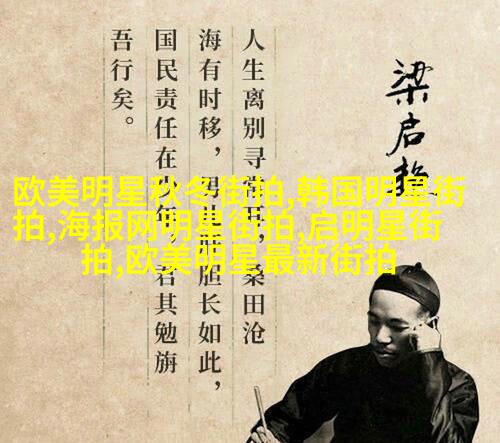 梁启超
人生离别寻常耳，桑田沧
海有时移，男儿肝胆长如此，
国民责任在少年，君其勉旃
吾行矣。
欧美明星秋冬街拍,韩国明星街
拍,海报网明星街拍,启明星街
拍,欧美明星最新街拍